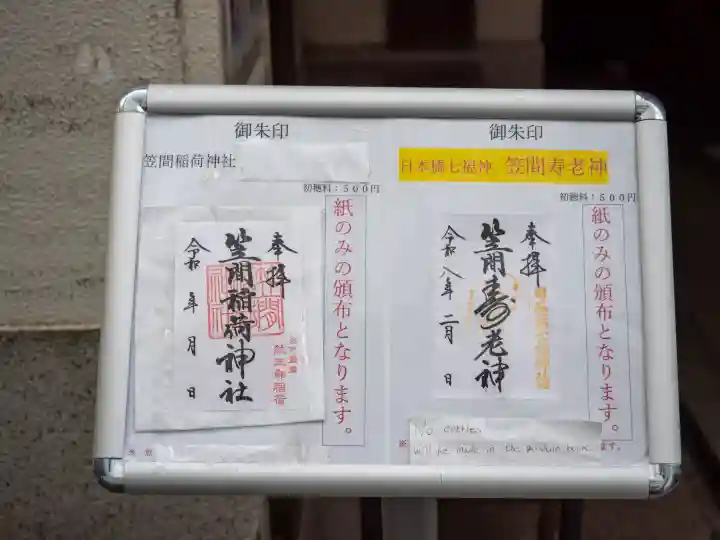 御朱印
笠間稲荷神社
初穂料：５００円
紙のみの頒布となります。
奉拝
笠間稲荷神社
令和 年 月 日
御朱印
日本橋七福神 笠間寿老神
初穂料：５００円
紙のみの頒布となります。
奉拝
笠間寿老神
令和八年 二月 日
No entries
will be made in the goshuin book.
※
ます。